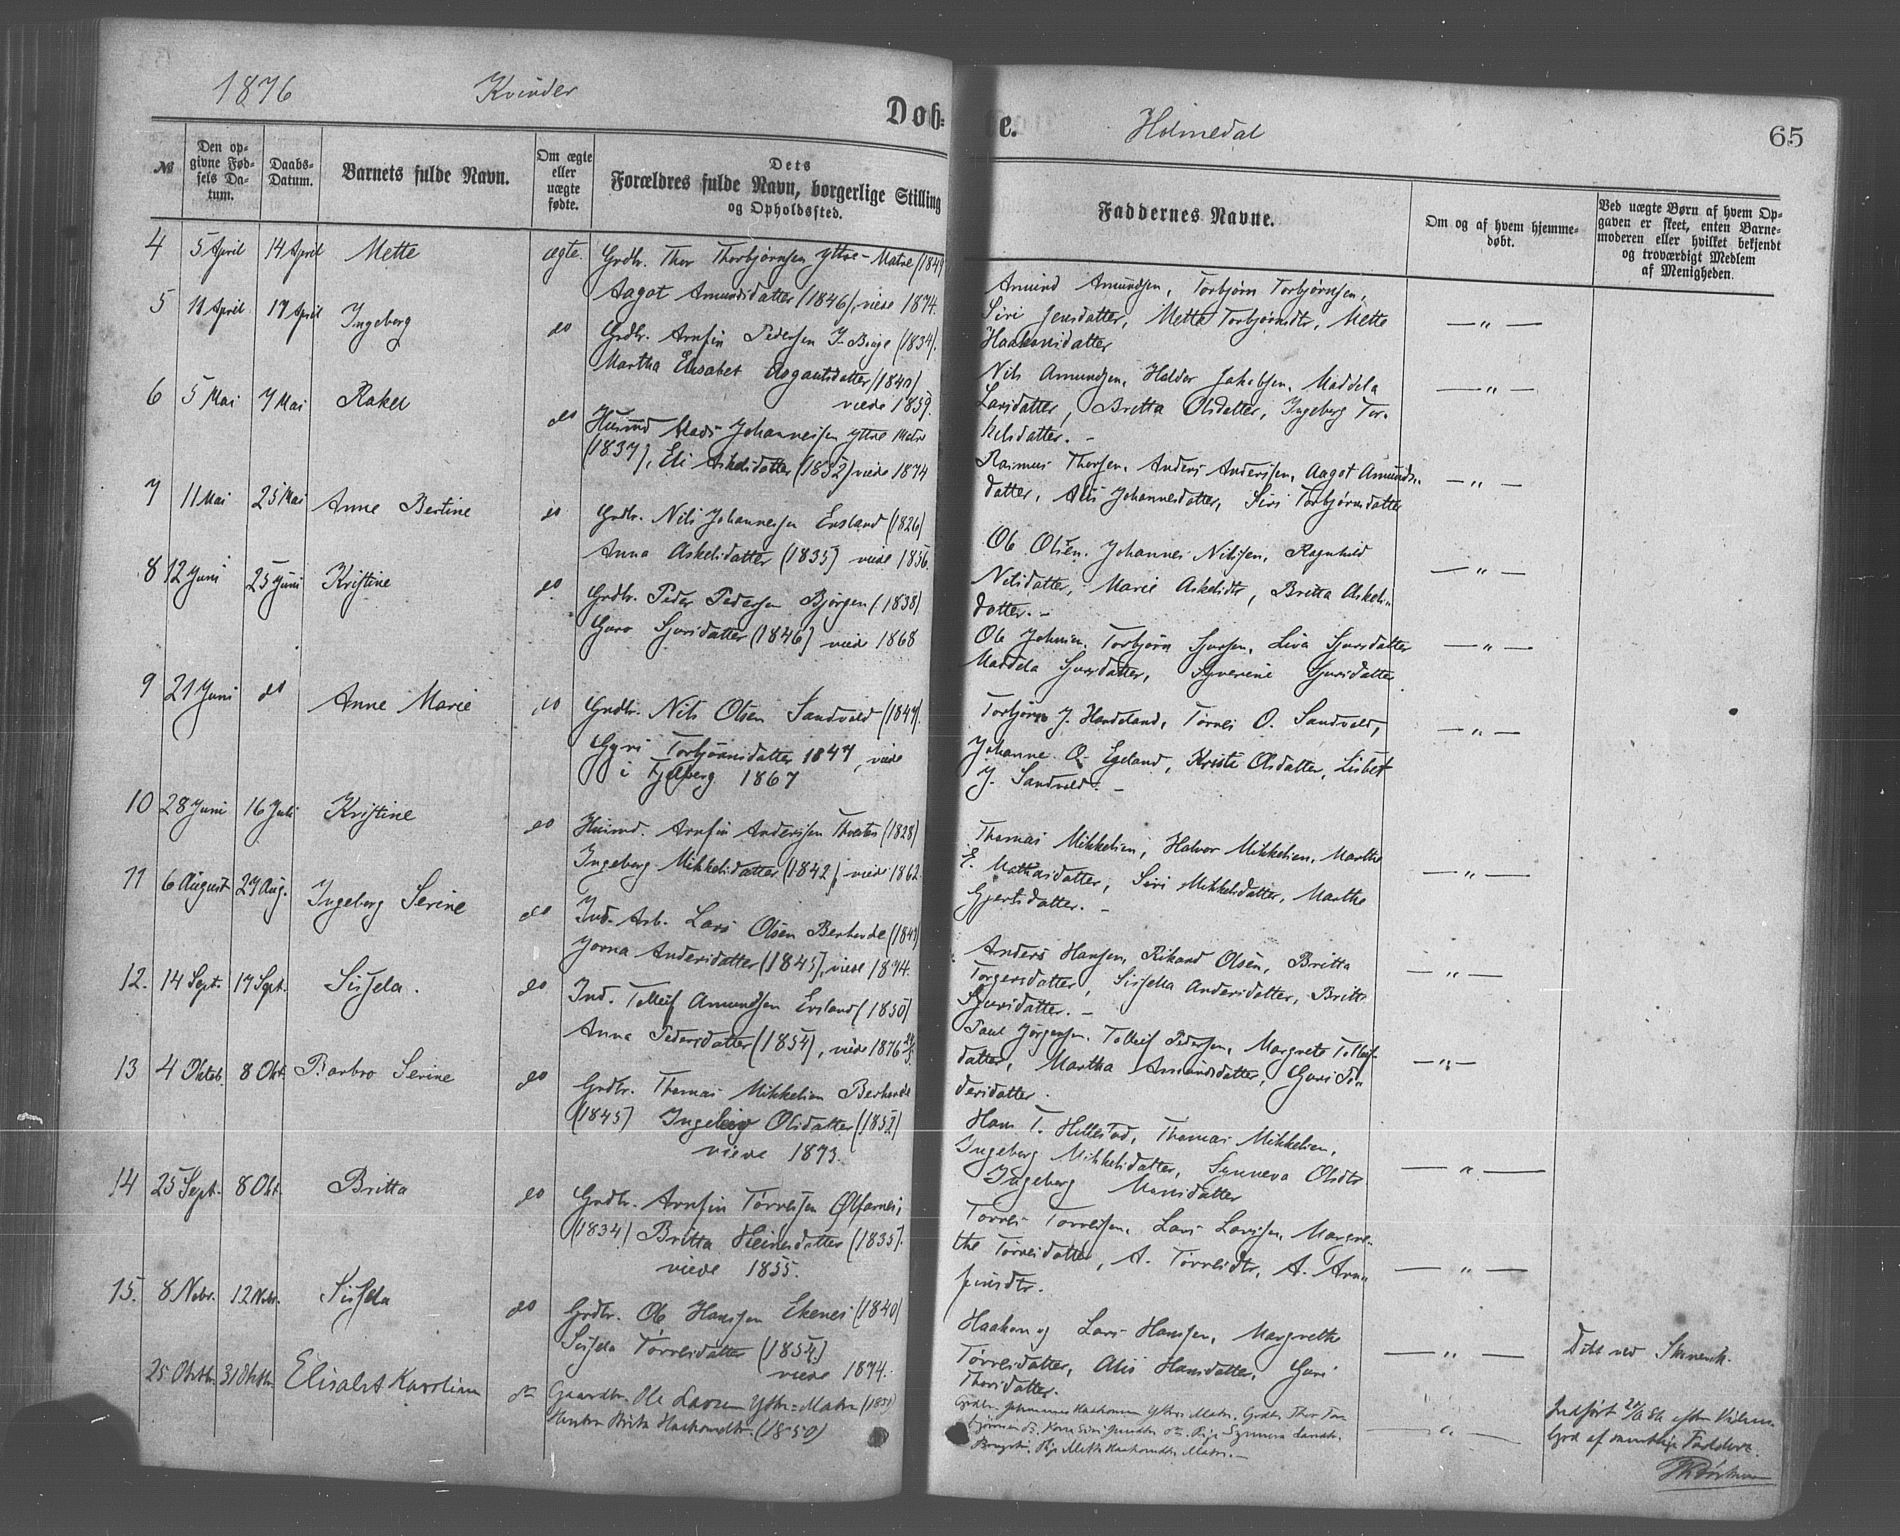 1876 Kvinder
Döb-
te.
Holmedal
65
№
Den op-
givne Fød-
sels Da-
tum.
Daabs-
Datum.
Barnets fulde Navn.
Om ægte
eller
uægte
fødte.
Dets
Forældres fulde Navn, borgerlige Stilling
og Opholdssted.
Faddernes Navne.
Om og af hvem hjemme-
døbt.
Ved uægte Børn af hvem Op-
gaven er skeet, enten Barne-
moderen eller hvilket bekjendt
og troværdigt Medlem
af Menigheden.
4 5 April 14 April Mette ægte. Grdbr. Thor Thorbjørnsen yttre-Matre (1849
Aagot Amundsdatter (1846), viede 1874.
Amund Amundsen, Torbjørn Torbjørnsen,
Siri Jensdatter, Mette Torbjørnsdtr, Mette
Haakonsdatter
— " —
5 11 April 17 April Ingeborg do Grdbr. Arnfin Pedersen (1834).
Martha Elisabet Aogautsdatter (1840)
viede 1859.
Nils Amundsen, Haldor Jakobsen, Maddela
Larsdatter, Britta Olsdatter, Ingeborg Tor-
kelsdatter. –
— " —
6 5 Mai 7 Mai Rakel do Husmd Mads Johannessen yttre Matre
(1837), Eli Askelsdatter (1852) viede 1874
Rasmus Thorsen, Anders Anderssen, Aagot Amunds-
datter, Alis Johannesdatter, Siri Torbjørnsdatter
— " —
7 11 Mai 25 Mai Anne Bertine do Grdbr. Nils Johannessen Ersland (1826)
Anna Askelsdatter (1835) viede 1856.
Ole Olsen, Johannes Nilssen, Ragnhild
Nilsdatter, Marie Askelsdtr, Britta Askels-
datter. –
— " —
8 12 Juni 25 Juni Kristine do Grdbr. Peder Pedersen Bjørgen (1838)
Guro Sjursdatter (1846) viede 1868
Ole Johnsen, Torbjørn Sjursen, Liva Sjursdatter
Maddela Sjursdatter, Syverine Sjursdatter
— " —
9 21 Juni do Anne Marie do Grdbr. Nils Olsen Sandvold (1847).
Gyri Torbjørnsdatter 1847, viede
i Fjelberg 1867
Torbjørn J. Handeland, Tørres O. Sandvold,
Johanne O. Egeland, Kriste Olsdatter, Lisbet
J. Sandvold. –
— " —
10 28 Juni 16 Juli Kristine do Husmd. Arnfin Anderssen (1828)
Ingeborg Mikkelsdatter (1842), viede 1862.
Thomas Mikkelsen, Halvor Mikkelsen, Marthe
E. Mathiasdatter, Siri Mikkelsdatter, Marthe
Gjertsdatter. –
— " —
11 6 August 27 Aug. Ingeborg Serine do Ind. Arb. Lars Olsen Berhovde
Jorna Andersdatter (1845), viede 1874.
Anders Hansen, Rikard Olsen, Britta
Torgersdatter, Sissella Andersdatter, Britte
Sjursdatter. –
— " —
12. 14 Sept. 17 Sept. Sissela. do Ind. Tolleif Amundsen Ersland (1850)
Anna Pedersdatter (1854), viede 1876
Paul Jørgensen, Tolleif Pedersen, Margrete Tolleifs-
datter, Martha Amundsdatter, Guri Pe-
dersdatter.
— " —
13 4 Oktob. 8 Okt. Barbro Serine do Grdbr. Thomas Mikkelsen Berhovde
(1845) Ingeborg Olsdatter (1852)
viede 1873.
Hans T. Hellestad, Thomas Mikkelsen,
Ingeborg Mikkelsdatter, Synneva Olsdtr
Ingeborg Monsdatter
— " —
14 25 Sept. 8 Okt. Britta do Grdbr. Arnfin Tørressen Ølfarnes,
(1834) Britta Heinesdatter (1835).
viede 1855.
Tørres Tørressen, Lars Larssen, Margre-
the Tørresdatter, A. Tørresdtr, A. Arn-
finsdtr.
— " —
15. 8 Nobr. 12 Nobr. Sissela do Grdbr. Ole Hanssen Ekenes (1840)
Sissela Tørresdatter (1854)
viede 1874.
Haakon og Lars Hanssen, Margrethe
Tørresdatter, Alis Hansdatter, Guri
Thorsdatter.
— " —
Døbt ved
25 Oktbr. 31 Oktbr. Elisabet Karoline do Gaardbr. Ole Larsen Yttre-Matre (1851)
Hustru Brita Haakonsdtr. (1850)
Grdbr. Johannes Haakonsen Yttre Matre, Grdbr. Thor Tor-
bjørnsen do, Kone Siri Jensdtr do, Pige Synneva Larsdtr.
Pige Mette Haakonsdtr Matre. –
— " —
Indført efter
God af samtlige Faddere.